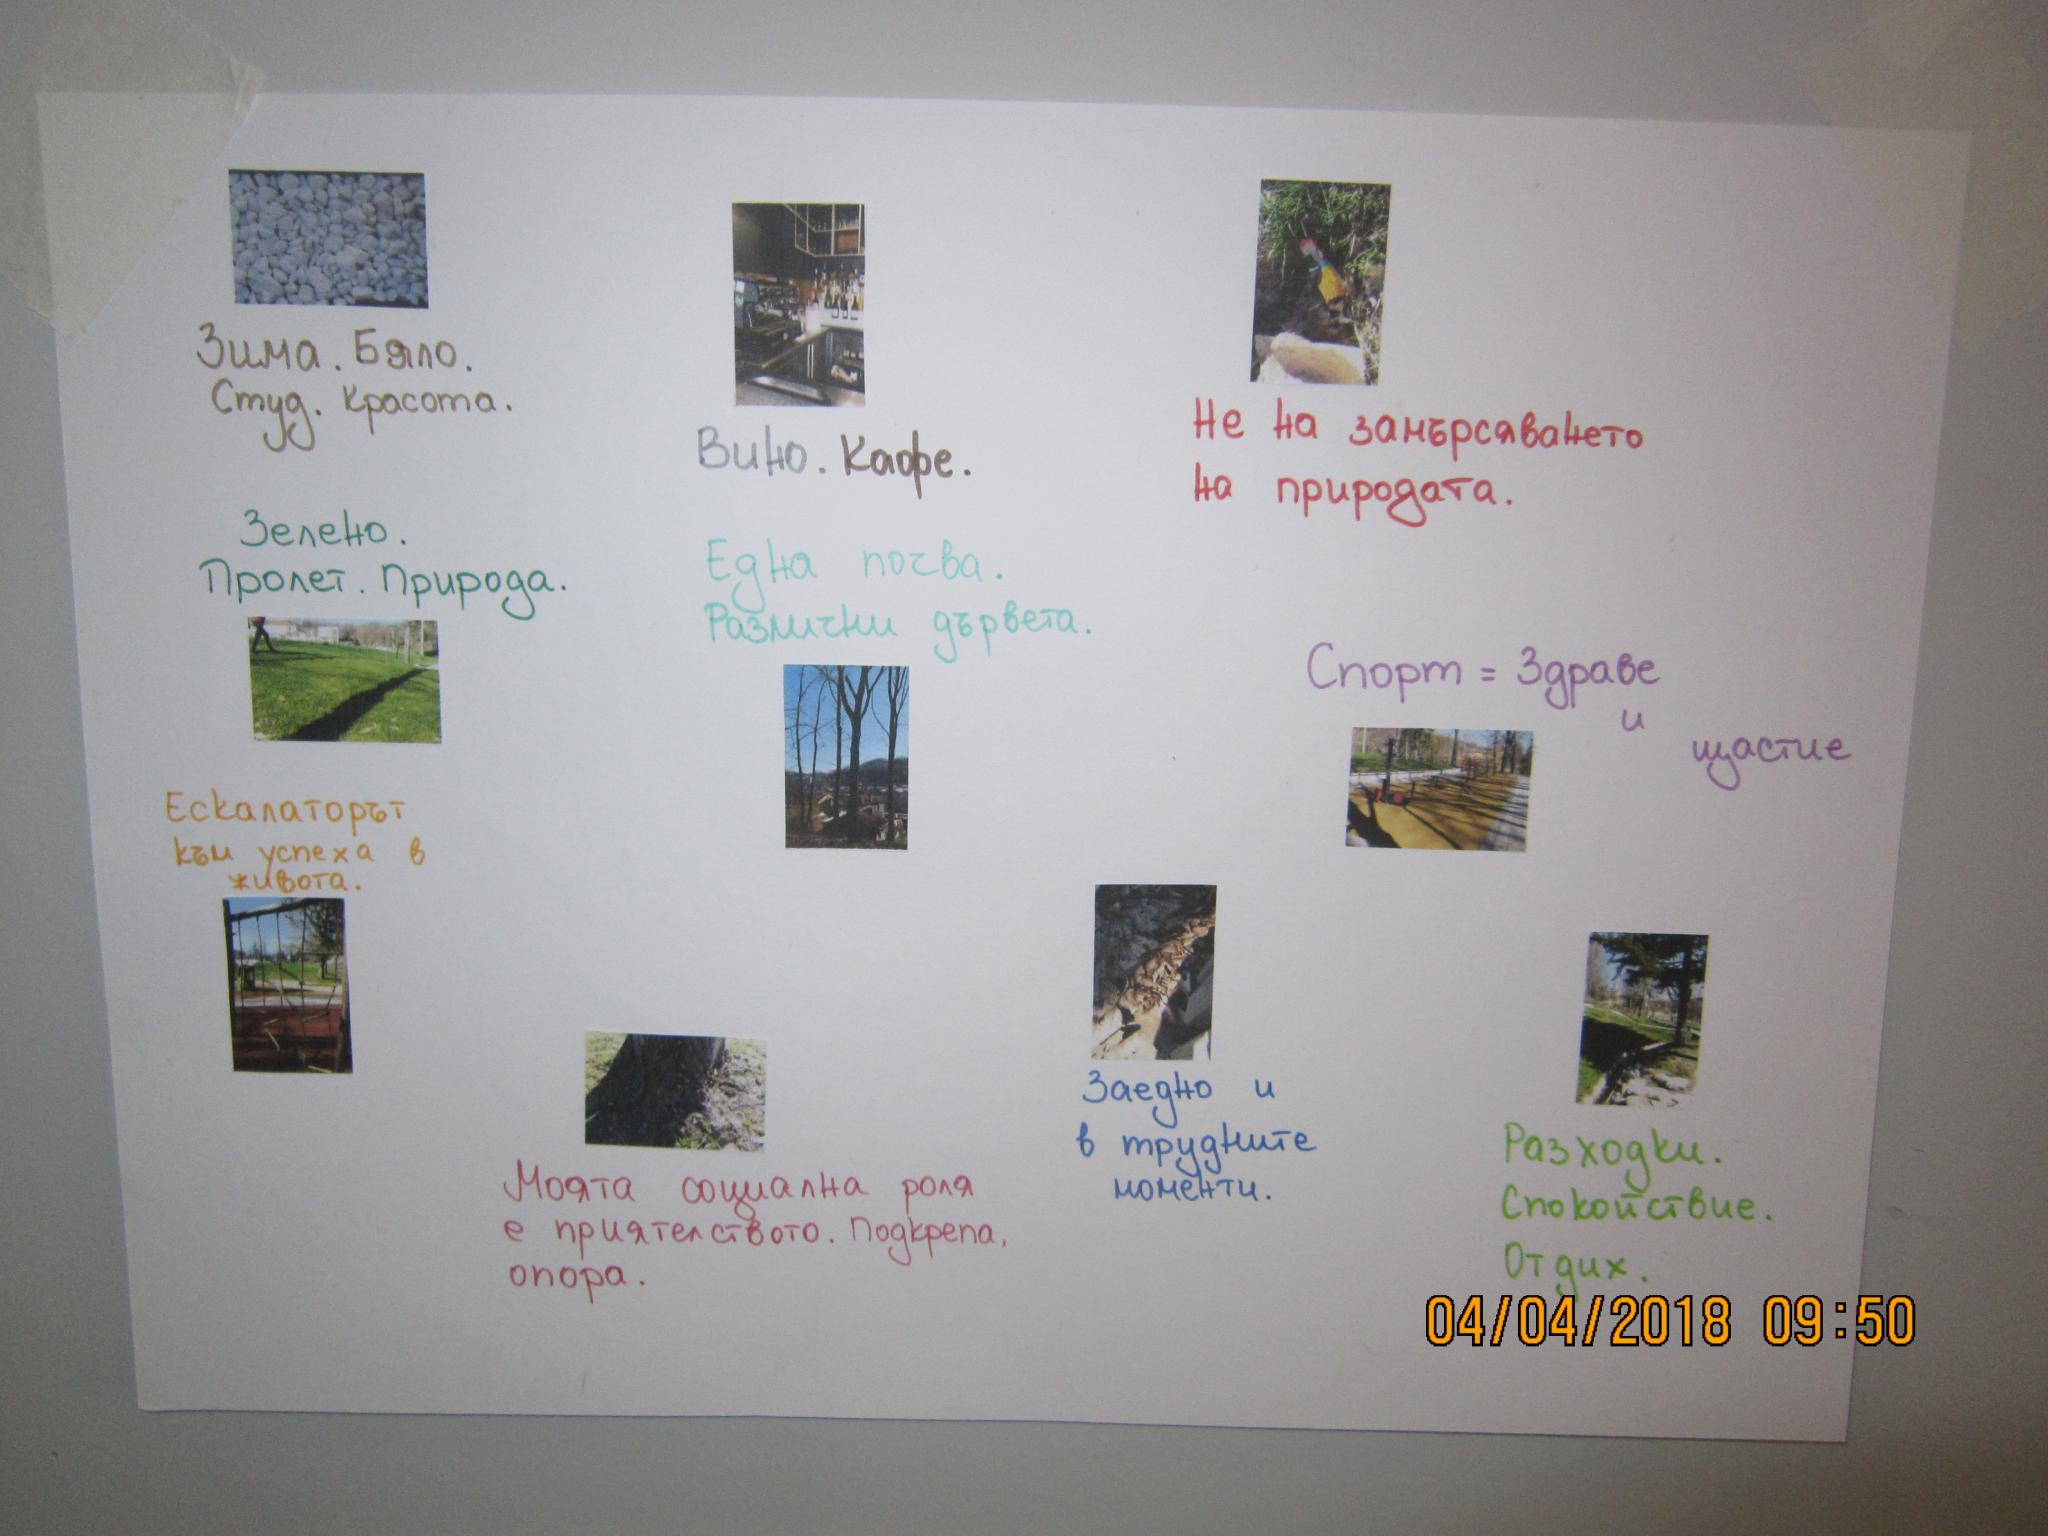 Зима. Бяло.
Студ. Красота.
Вино. Кафе.
Не на замърсяването
на природата.
Зелено.
Пролет. Природа.
Една почва.
Различни дървета.
Спорт = Здраве
и
щастие
Ескалаторът
към успеха в
живота.
Моята социална роля
е приятелството. Подкрепа,
опора.
Заедно и
в трудните
моменти.
Разходки.
Спокойствие.
Отдих.
04/04/2018 09:50